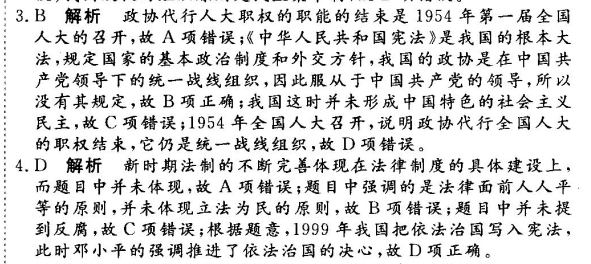 3. B 解析 政协代行人大职权的职能的结束是 1954 年第一届全国
人大的召开,故 A 项错误;《中华人民共和国宪法》是我国的根本大
法,规定国家的基本政治制度和外交方针,我国的政协是在中国共
产党领导下的统一战线组织,因此服从于中国共产党的领导,所以
没有其规定,故 B 项正确;我国这时并未形成中国特色的社会主义
民主,故 C 项错误;1954 年全国人大召开,说明政协代行全国人大
的职权结束,它仍是统一战线组织,故 D 项错误。
4. D 解析 新时期法制的不断完善体现在法律制度的具体建设上,
而题目中并未体现,故 A 项错误;题目中强调的是法律面前人人平
等的原则,并未体现立法为民的原则,故 B 项错误;题目中并未提
到反腐,故 C 项错误;根据题意,1999 年我国把依法治国写入宪法,
此时邓小平的强调推进了依法治国的决心,故 D 项正确。